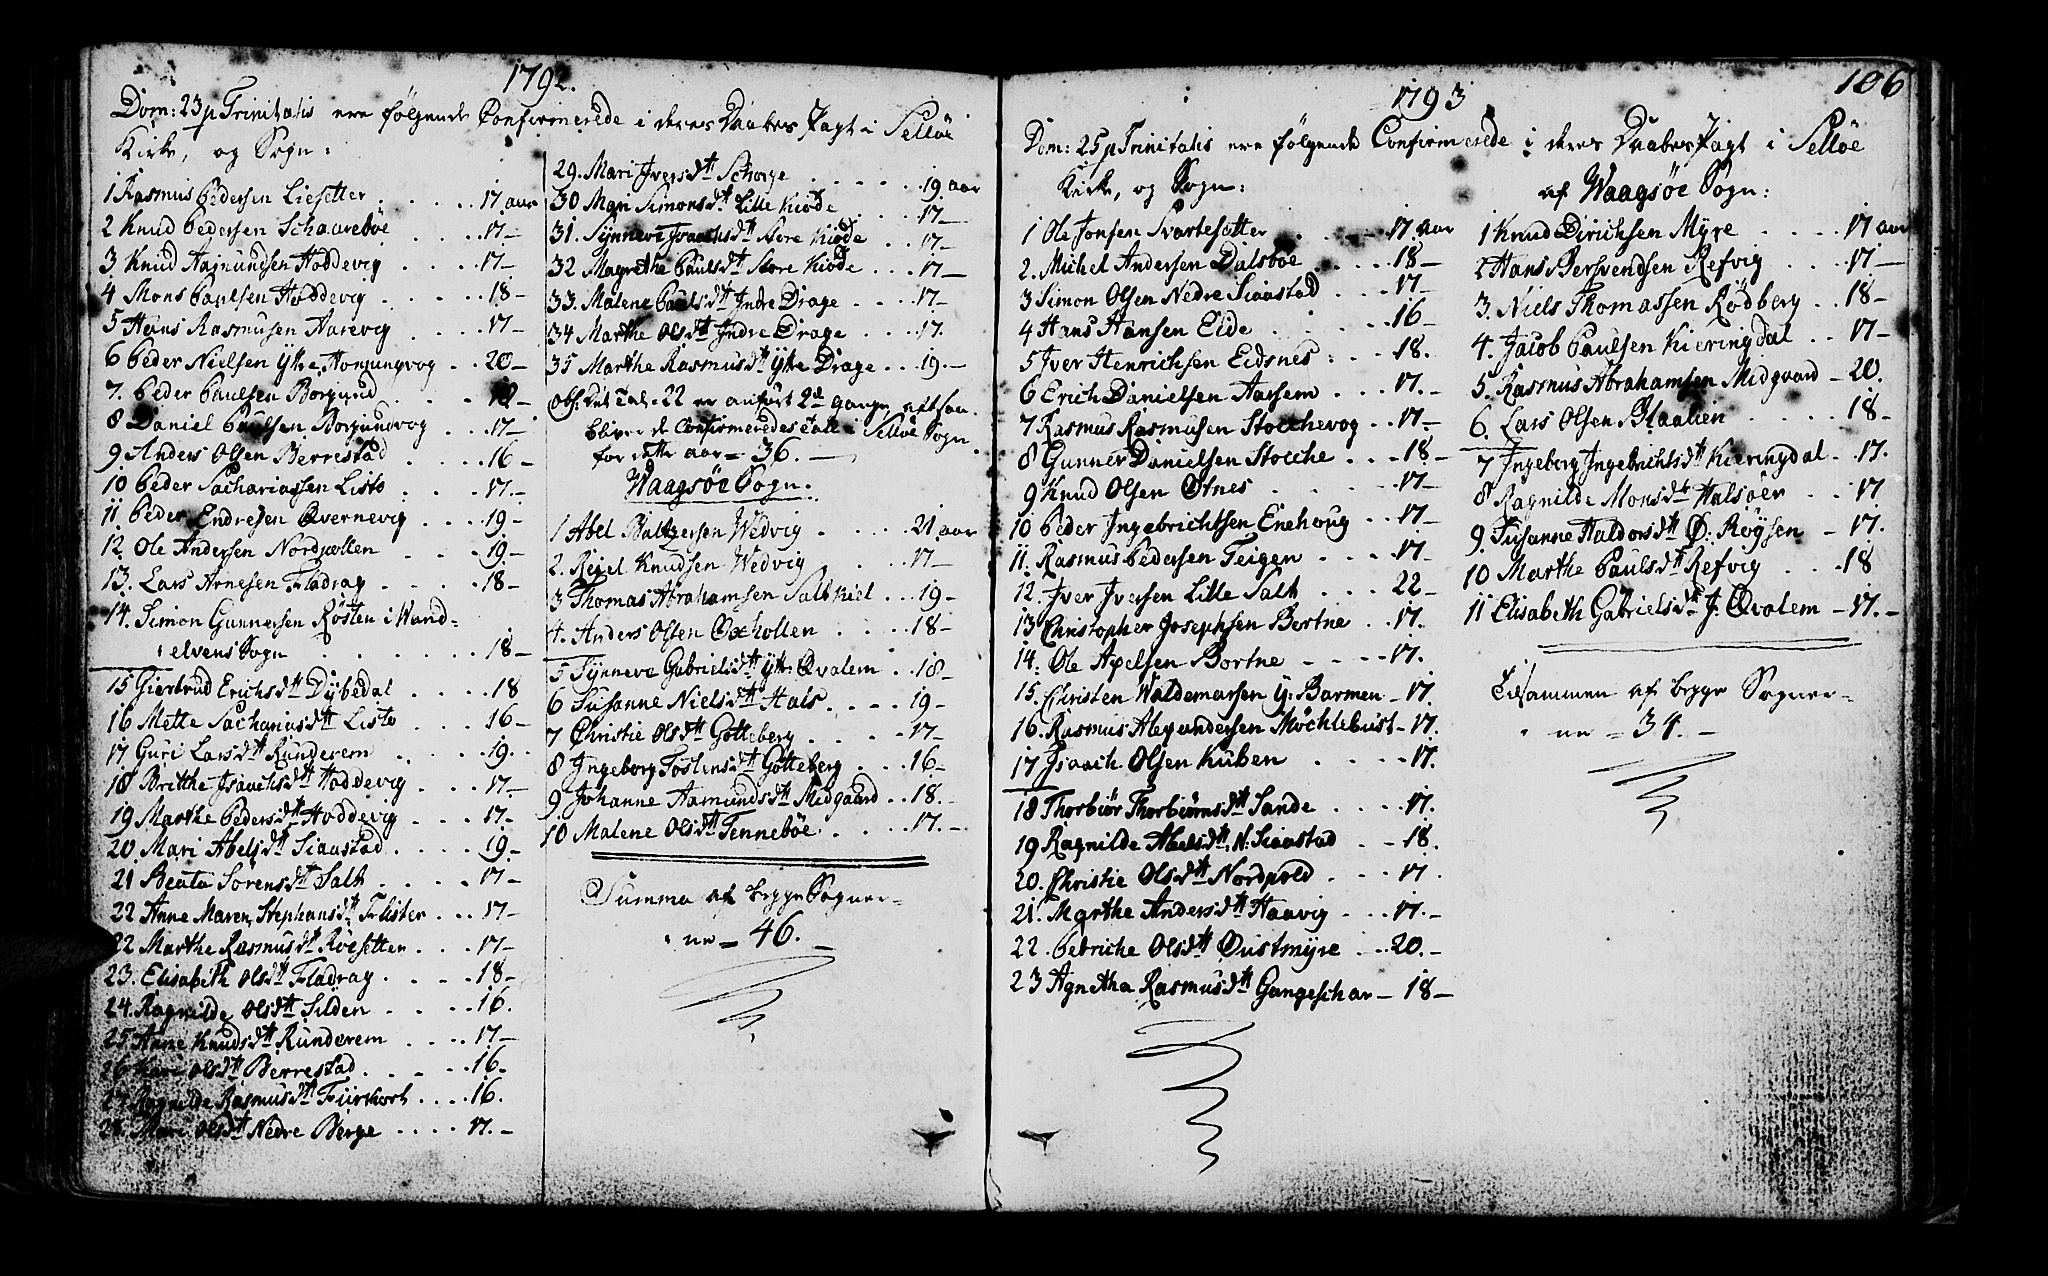 1792.
Dom: 23 p Trinitatis ere følgende Confirmerede i deres Daabes Pagt i Selløe
Kirke, og Sogn:
1 Rasmus Pedersen Liesetter . . . . 17 aar
2 Knud Pedersen Schaareboe . . . 17.-
3. Knud Aamundsen Hoddevig . . . . 17-
4 Mons Paulsen Hoddevig . . . . 18-
5 Hans Rasmusen Aarevig . . . . 17-
6 Peder Nielsen Ytre Honjungvog . . 20-
7. Peder Paulsen Borgund . . . 18-
8 Daniel Paulsen Borgundvog . . . 17-
9 Anders Olsen Berrestad . . . . 16-
10 Peder Sachariassen Listo . . . 17.-
11 Peder Endresen Qvernevig . . . 19-
12. Ole Andersen Nordpollen . . . . 19-
13. Lars Arnesen Fladrag . . . . 18-
14. Simon Gunnersen Røsten i Wand=
elvens Sogn . . . . . . 18-
15 Giertrud Erichsdtt Dybedal . . . . 18
16 Mette Sachariasdtt Listo . . . . 16-
17. Guri Larsdtt Runderem . . . . 19.
18 Brithe Isaachsdtt Hoddevig . . . 17.-
19 Marthe Pedersdtt Hoddevig . . . 17-
20 Mari Abelsdtt Siaastad . . . . 19-
21 Beata Sörensdtt Salt . . . . 17-
22 Anne Maren Stephansdtt Flister . . . 17-
22 Marthe Rasmusdtt Röesetter . . . 17-
23. Elisabeth Olsdtt Fladrag . . . . 18-
24. Ragnilde Olsdtt Silden . . . . 16.
25 Anne Knudsdtt Runderem . . . . 17-
26 Kari Olsdtt Berrestad . . . . 16-
27. Ragnilde Rasmusdtt Fiirskort . . . . 16.
28. Mari Olsdtt Nedre Berge . . . . 17.-
29. Mari Iversdtt Schorge . . . . . 19 aar
30 Mari Simonsdtt Lille Kiøde . . . . 17-
31. Synneve Isaachsdtt Store Kiøde . . 17-
32 Magrethe Paulsdtt Store Kiøde . . . 17-
33. Malene Paulsdtt Indre Drage . . . . 17-
34 Marthe Olsdtt Indre Drage . . . . 17.
35 Marthe Rasmusdtt Ytre Drage . . . 19.-
Obs: Det Tal 22 er anført 2de gange, altsaa
bliver de Confirmeredes Tall i Selløe Sogn
for dette aar = 36. -
Waagsöe Sogn.
1 Abel Baltzersen Wedvig . . . . 21 aar
2. Reiel Knudsen Wedvig . . . 17-
3 Thomas Abrahamsen Saltkiel . . . 19-
4. Anders Olsen Oxhollen . . . . 18-
5 Synneve Gabrielsdtt Ytre Qvalem . . 18-
6 Susanne Nielsdtt Hals . . . . 19-
7 Christie Olsdtt Gotteberg . . . . 17-
8 Ingeborg Toslensdtt Gotteberg . . . 16-
9. Johanne Aamundsdtt Midgaard . . 18.-
10 Malene Olsdtt Tenneböe . . . . 17.-
Summa af begge Sogner=
ne = 46. -
106
1793
Dom: 25 p Trinitatis ere følgende Confirmerede i deres Daabes Pagt i Selløe
Kirke, og Sogn:
1 Ole Jonsen Svartesetter . . . 17 aar
2. Michel Andersen Dalsboe . . . . 18-
3 Simon Olsen Nedre Siaastad . . . 17-
4 Hans Hansen Eide . . . . 16-
5 Iver Henrichsen Eidsnes : . . 18.
6 Erich Danielsen Aarsem . . . . 17.-
7 Rasmus Rasmusen Stocchevog . . 17.-
8 Gunner Danielsen Stocche . . . 18-
9 Knud Olsen Otnes . . . . 17-
10 Peder Ingebrichtsen Enehoug . . 17-
11. Rasmus Pedersen Teigen . . . 17-
12. Iver Iversen Lille Salt . . . 22-
13 Christopher Josephsen Bortne . . 17.
14. Ole Axelsen Bortne - - - - 17.
15. Christen Waldemarsen Y: Barmen - 17.
16. Rasmus Alexandersen Möchlebust - 17.
17 Isaach Olsen Kuben . . . . . 17.
18 Thorbiør Thorbiörnsdtt Sande . . . . 17.
19 Ragnilde Abelsdtt N: Siaastad . . 18.
20. Christie Olsdtt Nordpold . . . 17.
21. Marthe Andersdtt Haavig . . . 17.-
22. Petriche Olsdtt Qustmyre . . 20.-
23 Agnetha Rasmusdtt Gangeschar - 18-
af Waagsöe Sogn:
1 Knud Dirichsen Myre . . . . 17 aar
2 Hans Bersvendsen Refvig . . . . 17-
3. Niels Thomassen Rødberg . . 18-
4. Jacob Paulsen Kieringdal . . 17-
5. Rasmus Abrahamsen Midgaard - 20.
6. Lars Olsen Blaalien . . . . 18-
7 Ingeborg Ingebrichtsdtt Kieringdal - 17.
8 Ragnilde Monsdtt Halsöer . . . 17
9. Susanne Haldorsdtt Ø: Röysen - 17.
10 Marthe Paulsdtt Refvig . . . 18
11 Elisabeth Gabrielsdtt J: Qvalem - 17.-
Tilsammen af begge Sogner=
ne = 34. -